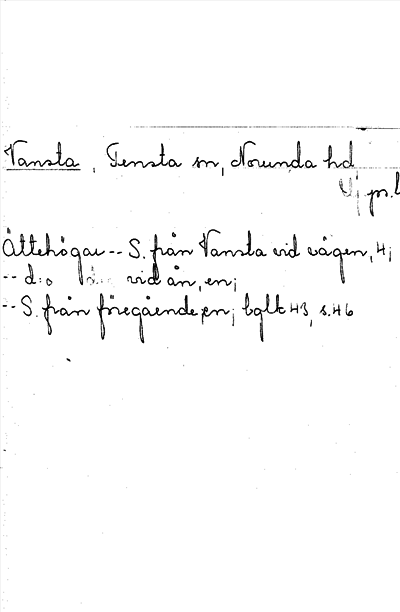 Vansta, Tensta sn, Norunda hd
U; pr.l
Ättehögar -- S. från Vansta vid vägen, 4;
-- d:o vid ån, en;
-- S. från föregående, en; bglk 43, s. 46